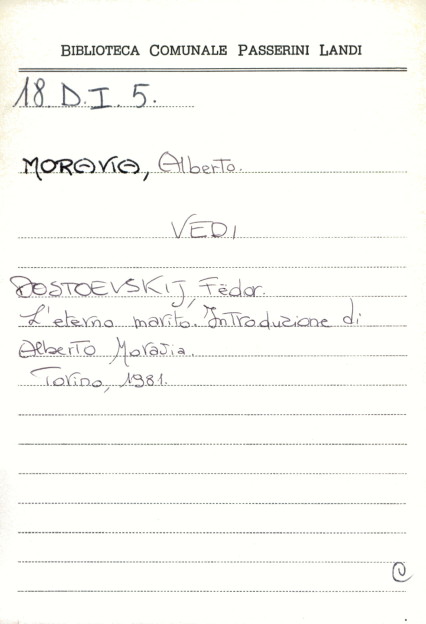 BIBLIOTECA COMUNALE PASSERINI LANDI
18. D. I. 5.
MORAVIA, Alberto.
VEDI
DOSTOEVSKIJ, Fëdor.
L'eterno marito. Introduzione di
Alberto Moravia.
Torino, 1981.